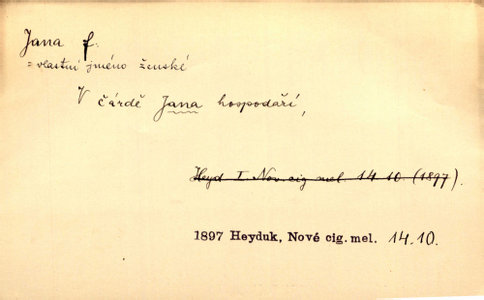 Jana f.
= vlastní jméno ženské
V čárdě Jana hospodaří,
Heyd I. Nov. cig mel. 14 10. (1897).
1897 Heyduk, Nové cig. mel. 14.10.